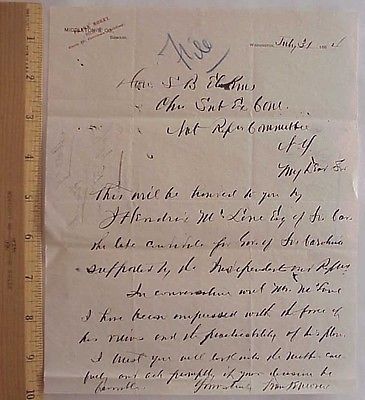 MIDDLETON &
File
Washington, July 31 188
Hon S. B. Elkins
Chr Sub Ex Com
Nat Repu Committee
N.Y.
My Dear Sir
This will be handed to you by
J Hendrix McLane Esq of So Car
the late candidate for Gov of So Carolina
supported by the Independent and Repbs
In conversation with Mr. McLane
I have been impressed with the force of
his views and the practicability of his plan
I trust you will look into the matter care
fully and act promptly, if your decision be
favorable. Yours truly